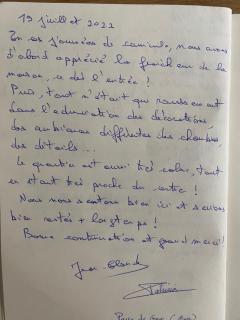 19 juillet 2022
En ces journées de canicule, nous avons
d'abord apprécié la fraîcheur de la
maison, et dès l'entrée !
Puis, tout n'était que ravissement
dans l'admiration des décorations,
des ambiances différentes des chambres
des détails...
Le quartier est aussi très calme, tout
en étant très proche du centre !
Nous nous sentons bien ici et serions
bien restés + longtemps !
Bonne continuation et grand merci !
Jean-Claude